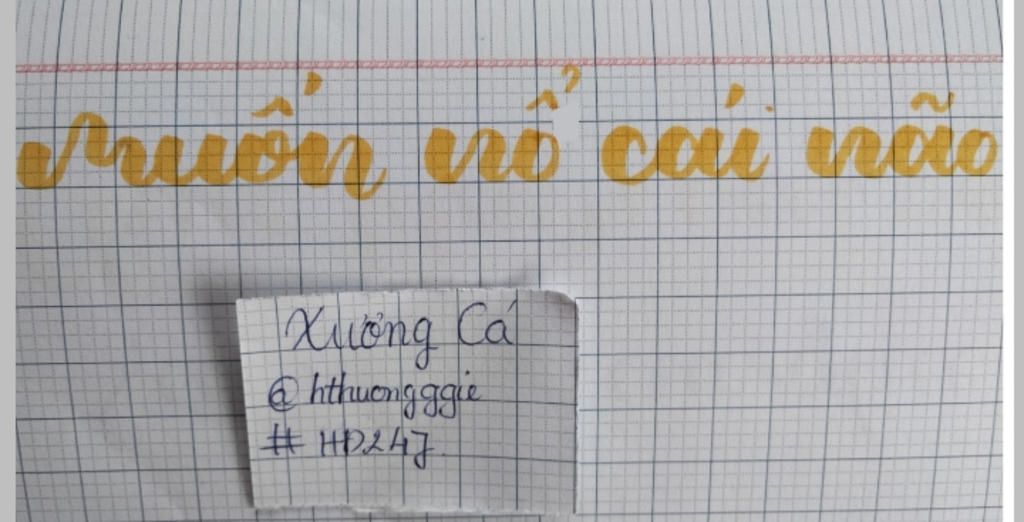 muốn nổ cái não
Xương Cá
@hthuongggie
# HD247